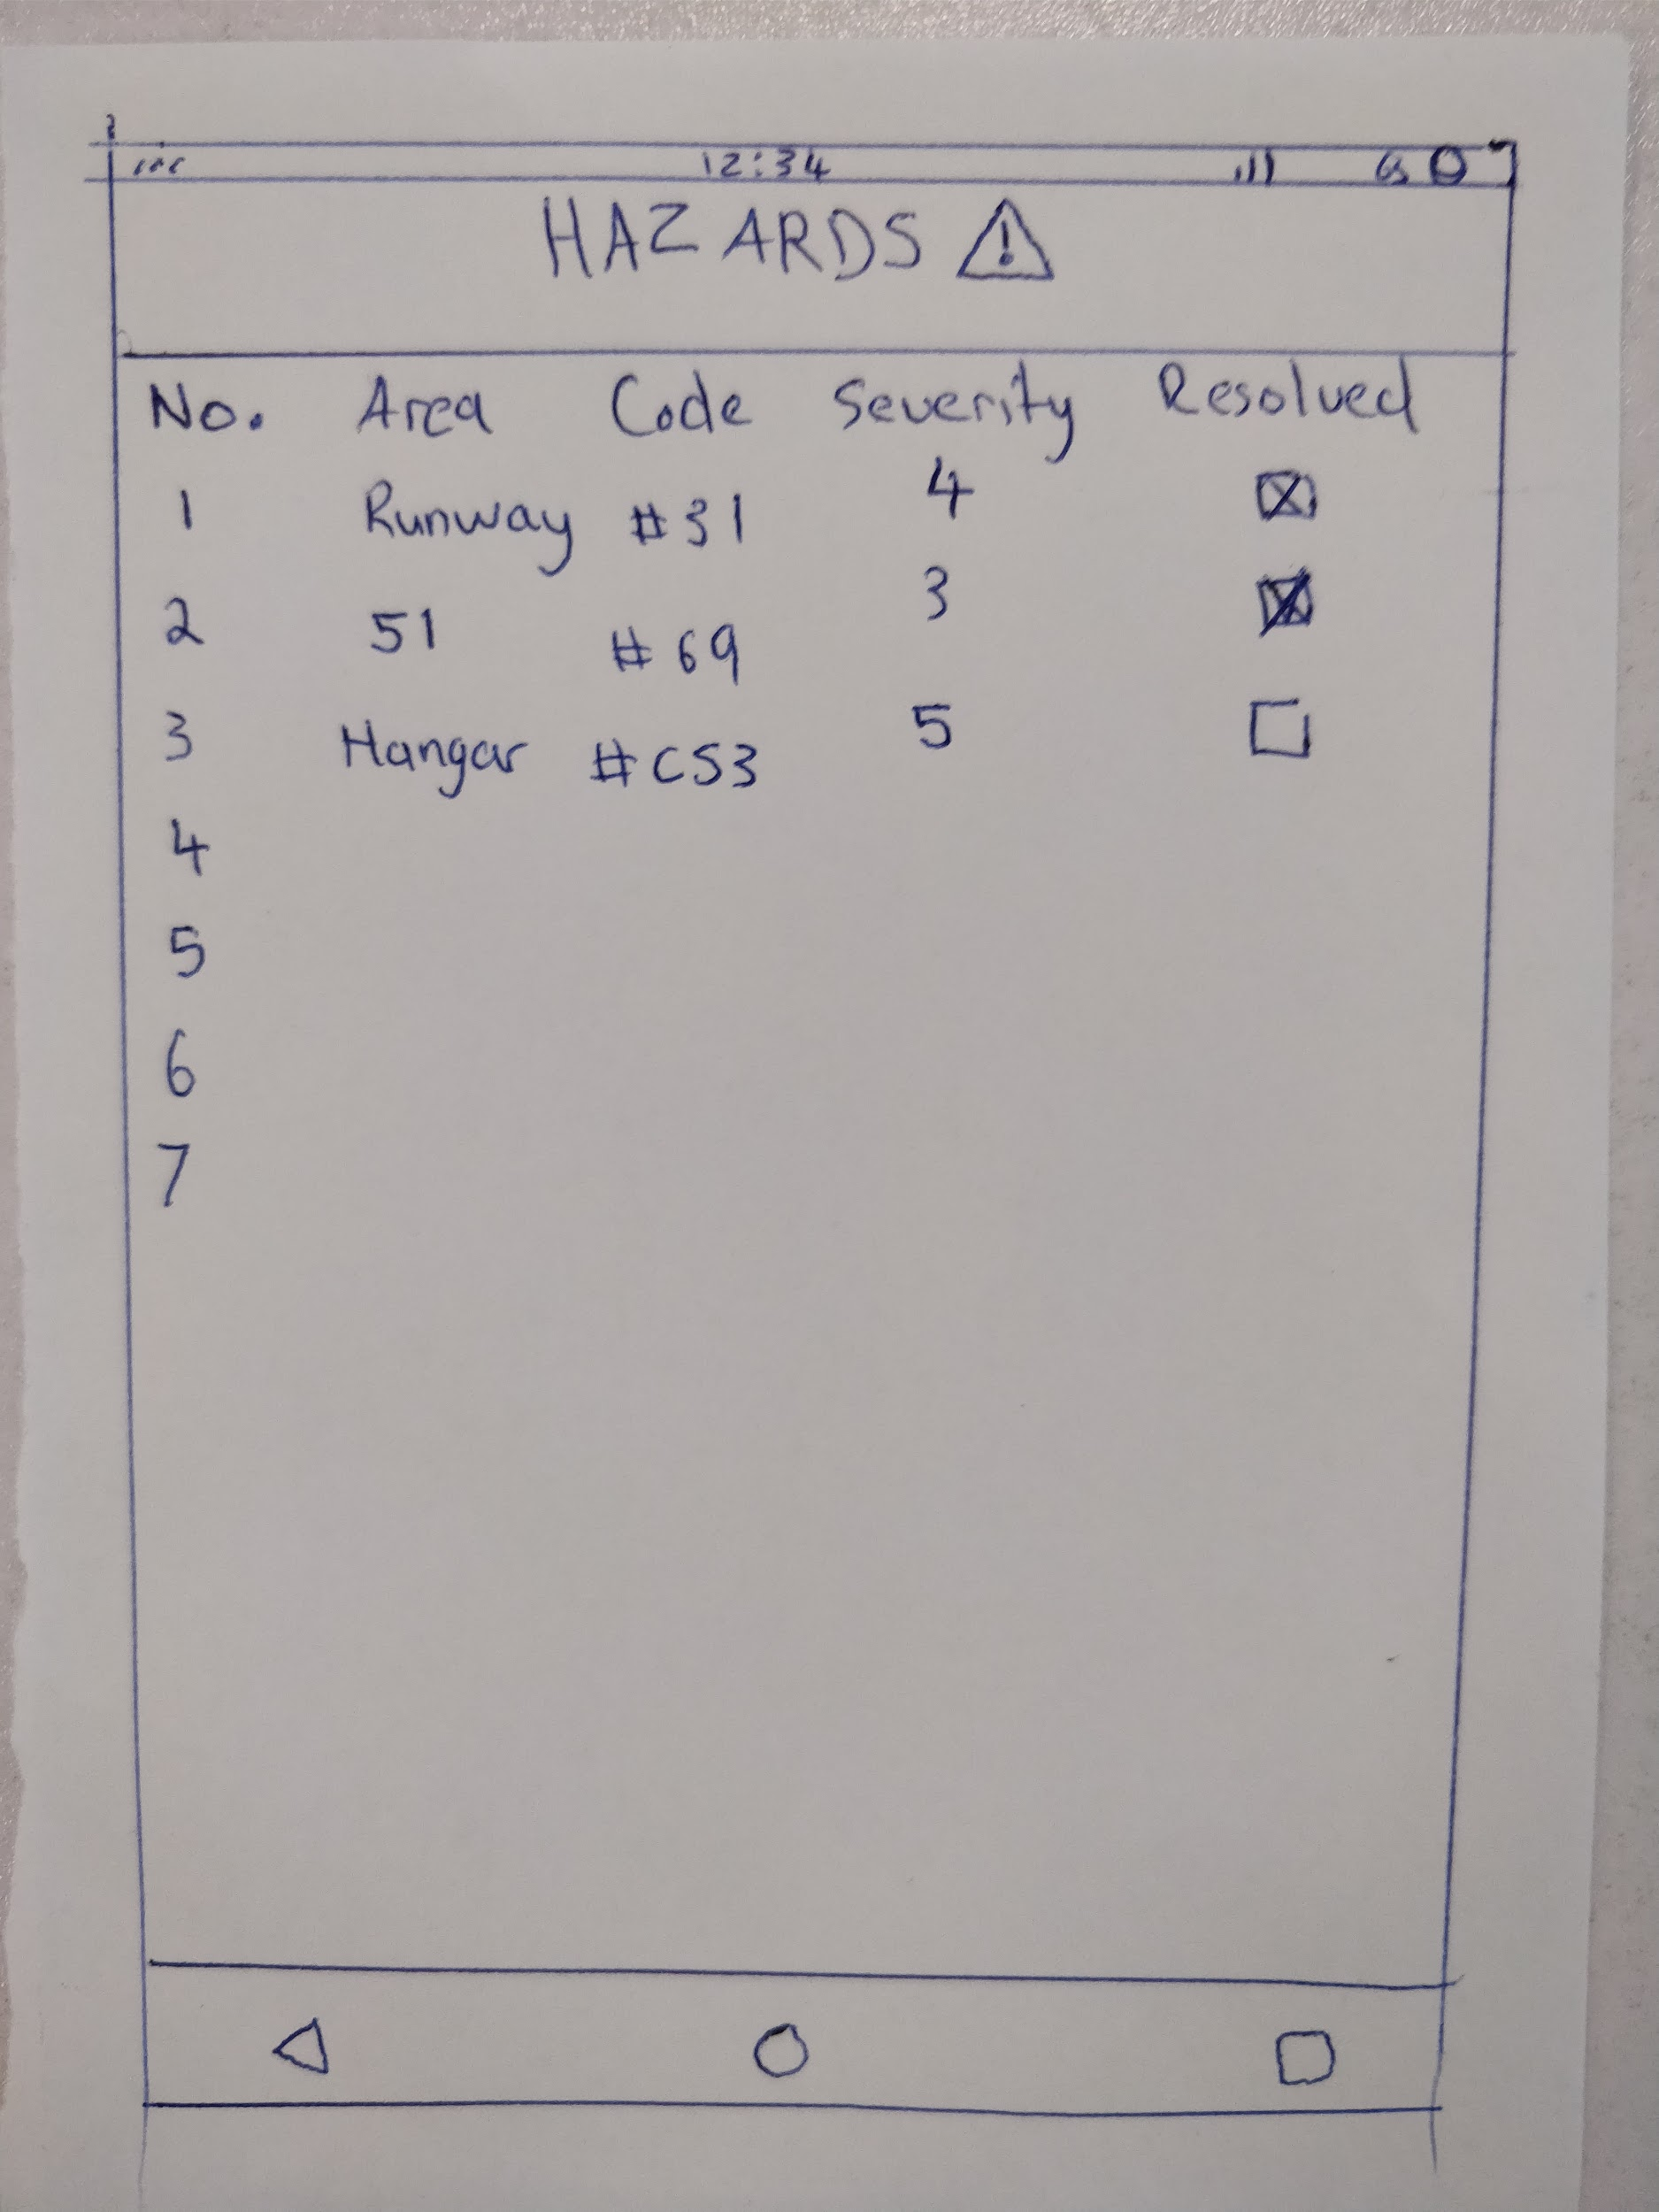 12:34
HAZARDS
No. Area Code Severity Resolved
1 Runway #31 4
2 51 #69 3
3 Hangar #C53 5
4
5
6
7